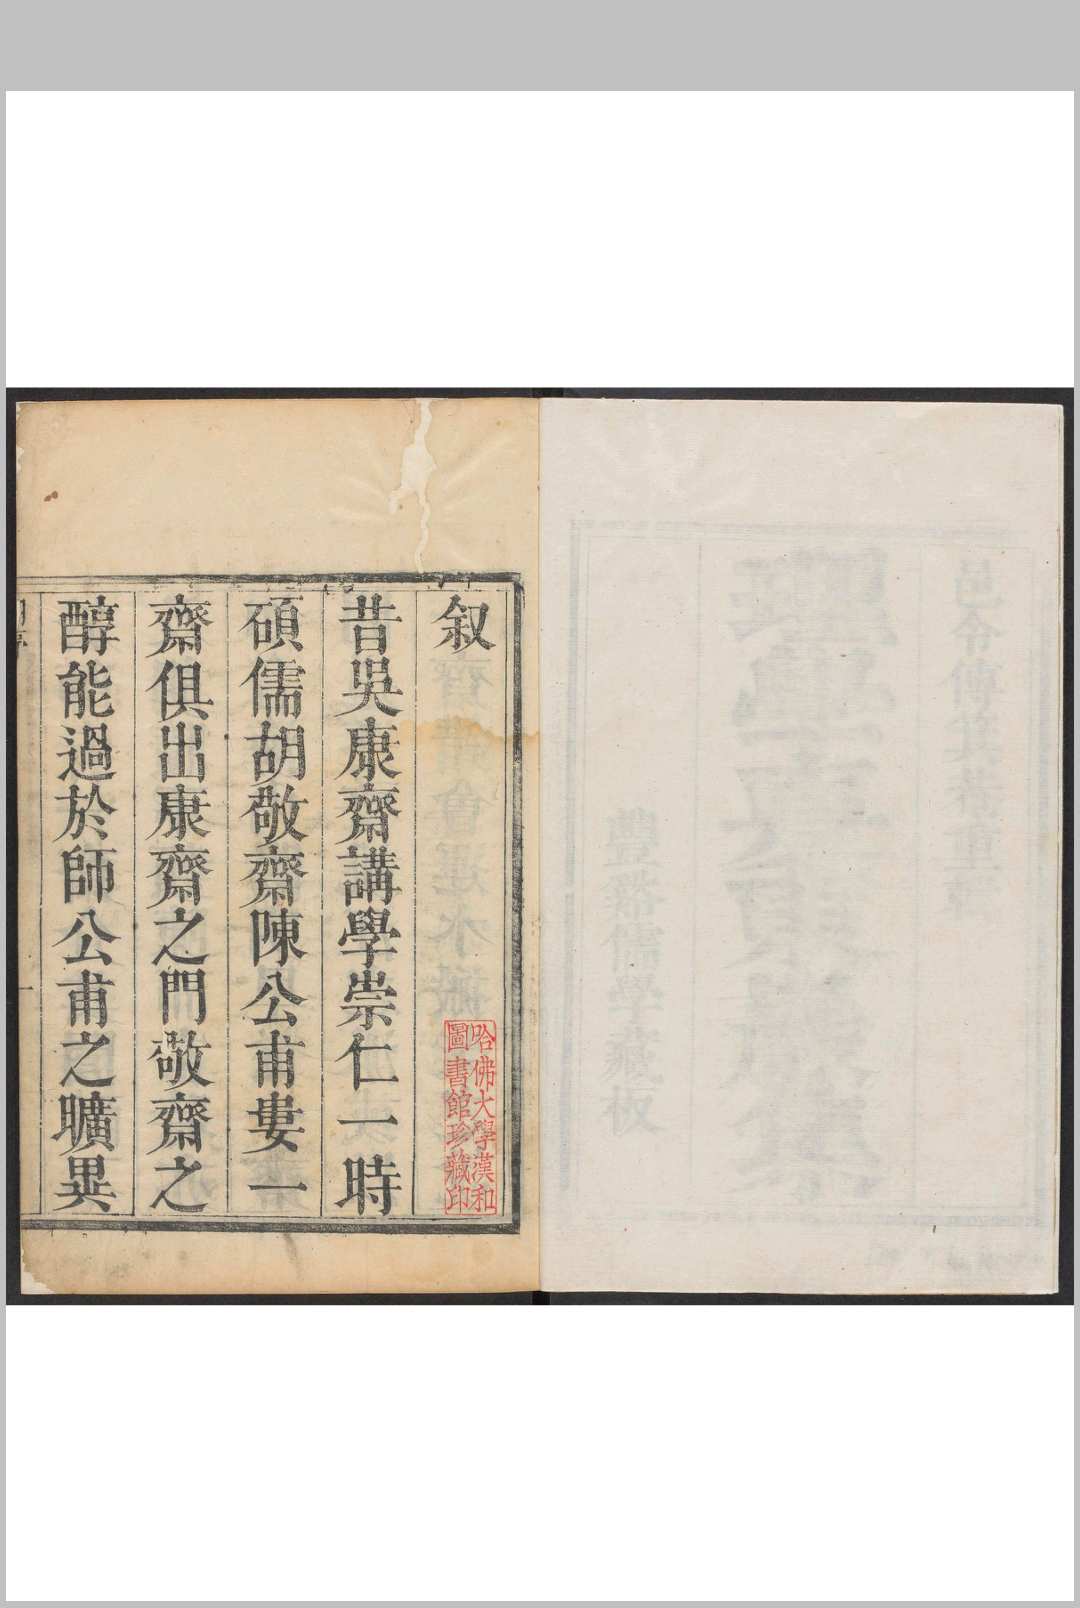 叙
昔吳康齋講學崇仁一時
碩儒胡敬齋陳公甫婁一
齋俱出康齋之門敬齋之
醇能過於師公甫之曠異
哈佛大學漢和
圖書館珍藏印
豐谿儒學藏板